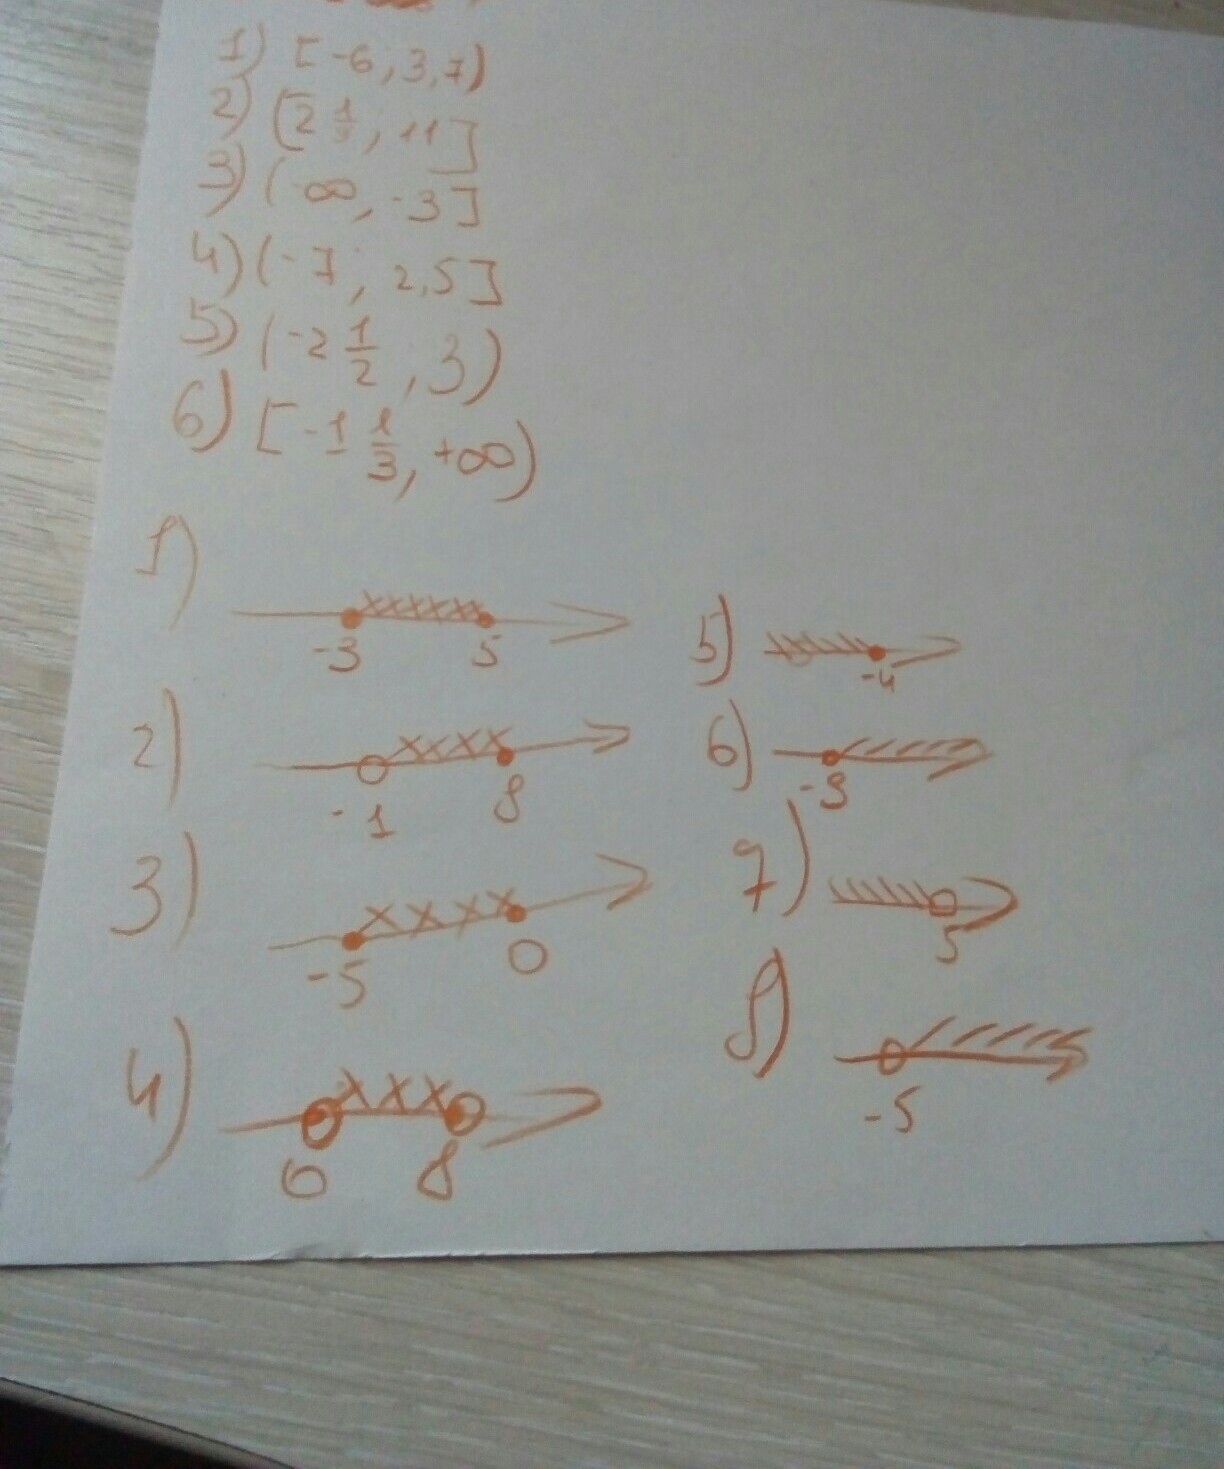 1) [-6, 3,7)
2) (2 1/3, 11]
3) (-∞, -3]
4) (-7; 2,5]
5) (-2 1/2, 3)
6) [-1 1/3, +∞)
1)
-3 5
2)
-1 8
3)
-5 0
4)
0 8
5)
-4
6)
-3
7)
5
8)
-5